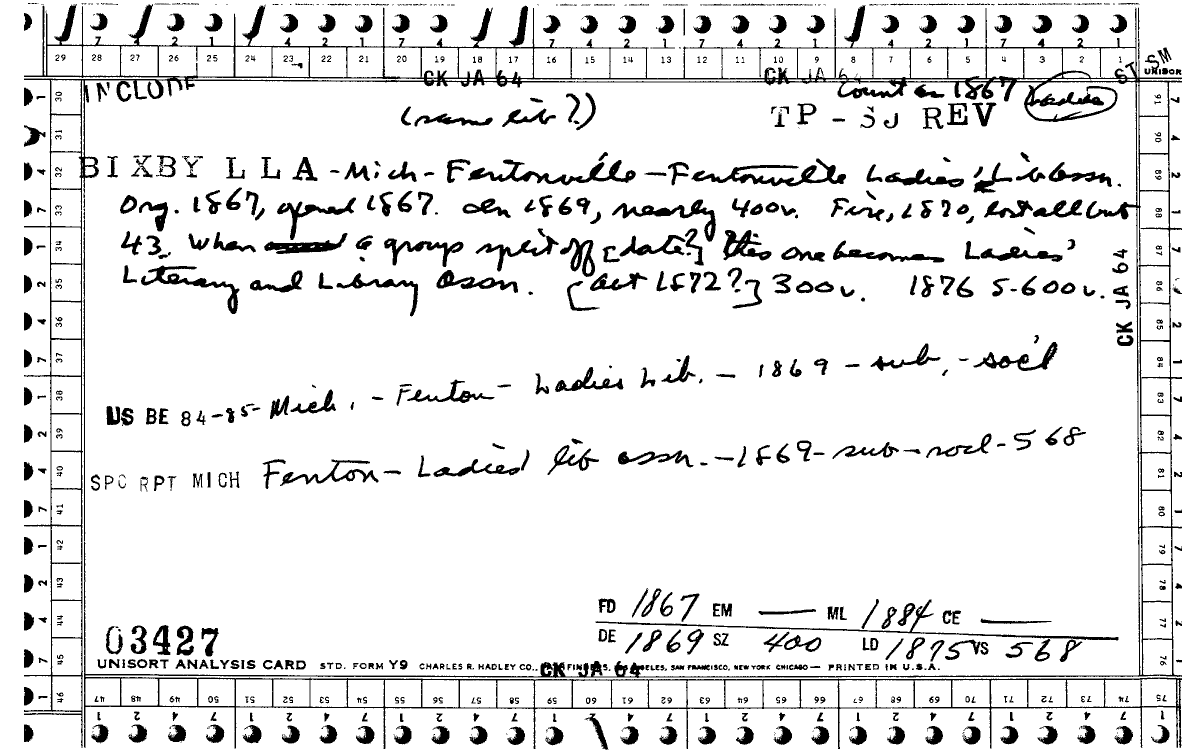 7 4 2 1 7 4 2 1 7 4 2 1 7 4 2 1 7 4 2 1 7 4 2 1 7 4 2 1
29 28 27 26 25 24 23 22 21 20 19 18 17 16 15 14 13 12 11 10 9 8 7 6 5 4 3 2 1
ST SM
UNISOR
CK JA 64 CK JA 64
INCLUDE
Count as 1867 Ladies
(same lib?)
TP - SJ REV
BIXBY LLA - Mich - Fentonville - Fentonville Ladies' Lib assn.
Org. 1867, opened 1867. In 1869, nearly 400v. Fire, 1870, lost all but
43. When a group split off [date?] this one becomes Ladies'
Literary and Library Assn. [act 1872?] 300v. 1876 5-600v.
CK JA 64
US BE 84-85- Mich. - Fenton - Ladies Lib. - 1869 - sub. - soc'l
SPC RPT MICH Fenton - Ladies' lib assn. - 1869 - sub - socl - 568
FD 1867 EM — ML 1884 CE —
DE 1869 SZ 400 LD 1875 VS 568
03427
UNISORT ANALYSIS CARD STD. FORM Y9 CHARLES R. HADLEY CO., PATHFINDERS, LOS ANGELES, SAN FRANCISCO, NEW YORK CHICAGO — PRINTED IN U.S.A.
CK JA 64
30 31 32 33 34 35 36 37 38 39 40 41 42 43 44 45 46
47 48 49 50 51 52 53 54 55 56 57 58 59 60 61 62 63 64 65 66 67 68 69 70 71 72 73 74 75
1 2 4 7 1 2 4 7 1 2 4 7 1 2 4 7 1 2 4 7 1 2 4 7 1 2 4 7 1
91 90 89 88 87 86 85 84 83 82 81 80 79 78 77 76